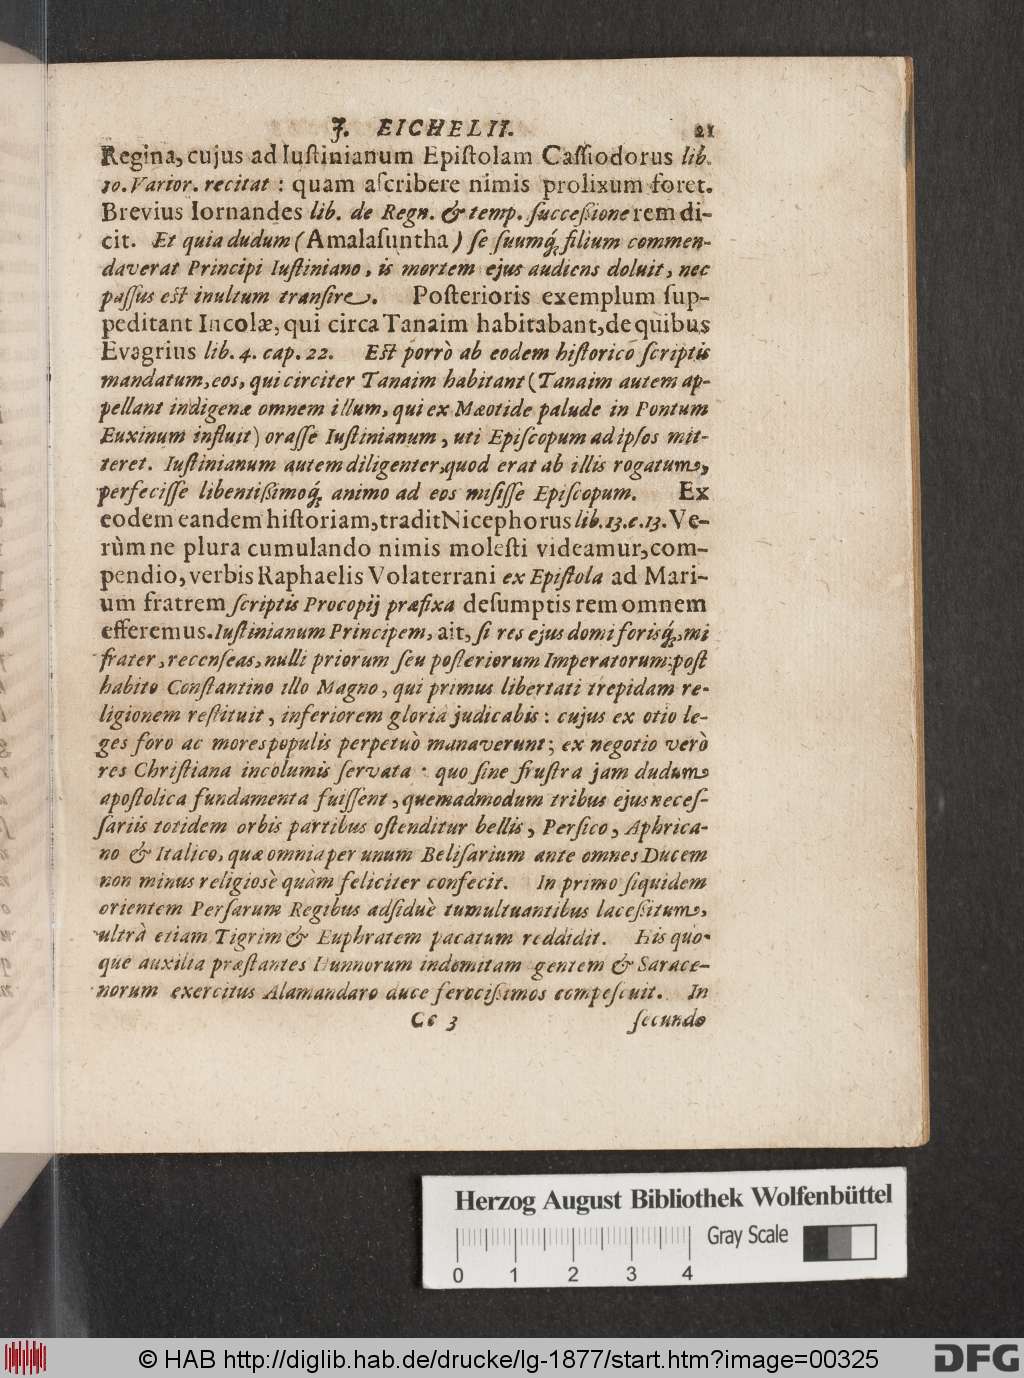 J. EICHELII. 21
Regina, cujus ad Iuſtinianum Epiſtolam Caſſiodorus lib.
10. Varior. recitat : quam aſcribere nimis prolixum foret.
Brevius Iornandes lib. de Regn. & temp. ſucceßione rem di-
cit. Et quia dudum (Amalaſuntha) ſe ſuumq́; filium commen-
daverat Principi Iuſtiniano, is mortem ejus audiens doluit, nec
paſſus eſt inultum tranſire. Poſterioris exemplum ſup-
peditant Incolæ, qui circa Tanaim habitabant, de quibus
Evagrius lib. 4. cap. 22. Eſt porrò ab eodem hiſtorico ſcriptis
mandatum, eos, qui circiter Tanaim habitant (Tanaim autem ap-
pellant indigenæ omnem illum, qui ex Mæotide palude in Pontum
Euxinum influit) oraſſe Iuſtinianum, uti Epiſcopum ad ipſos mit-
teret. Iuſtinianum autem diligenter, quod erat ab illis rogatum,
perfeciſſe libentißimoq́; animo ad eos miſiſſe Epiſcopum. Ex
eodem eandem hiſtoriam, tradit Nicephorus lib. 13. c. 13. Ve-
rùm ne plura cumulando nimis moleſti videamur, com-
pendio, verbis Raphaelis Volaterrani ex Epiſtola ad Mari-
um fratrem ſcriptis Procopij præfixa deſumptis rem omnem
efferemus. Iuſtinianum Principem, ait, ſi res ejus domi forisq́;, mi
frater, recenſeas, nulli priorum ſeu poſteriorum Imperatorum: poſt
habito Conſtantino illo Magno, qui primus libertati trepidam re-
ligionem reſtituit, inferiorem gloria judicabis: cujus ex otio le-
ges foro ac mores populis perpetuò manaverunt; ex negotio verò
res Chriſtiana incolumis ſervata · quo ſine fruſtra jam dudum
apoſtolica fundamenta fuiſſent, quemadmodum tribus ejus neceſ-
ſariis totidem orbis partibus oſtenditur bellis, Perſico, Aphrica-
no & Italico, quæ omnia per unum Beliſarium ante omnes Ducem
non minus religiosè quàm feliciter confecit. In primo ſiquidem
orientem Perſarum Regibus adſiduè tumultuantibus laceßitum,
ultrà etiam Tigrim & Euphratem pacatum reddidit. His quo-
que auxilia præſtantes Hunnorum indomitam gentem & Sarace-
norum exercitus Alamandaro duce ferocißimos compeſcuit. In
Cc 3 ſecundo
Herzog August Bibliothek Wolfenbüttel
Gray Scale
0 1 2 3 4
© HAB http://diglib.hab.de/drucke/lg-1877/start.htm?image=00325
DFG